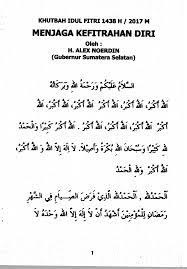 KHUTBAH IDUL FITRI 1438 H / 2017 M
MENJAGA KEFITRAHAN DIRI
Oleh :
H. ALEX NOERDIN
(Gubernur Sumatera Selatan)
السَّلاَمُ عَلَيْكُمْ وَرَحْمَةُ اللهِ وَبَرَكَاتُهُ
اَللهُ أَكْبَرُ، اَللهُ أَكْبَرُ، اَللهُ أَكْبَرُ، اَللهُ أَكْبَرُ
اَللهُ أَكْبَرُ، اَللهُ أَكْبَرُ، اَللهُ أَكْبَرُ كَبِيْرًا وَالْحَمْدُ
للهِ كَثِيْرًا وَسُبْحَانَ اللهِ بُكْرَةً وَأَصِيْلاً. لاَ إِلٰهَ إِلاَّ اللهُ وَاللهُ
أَكْبَرُ. اَللهُ أَكْبَرُ وَلِلّٰهِ الْحَمْدُ
اَلْحَمْدُ للهِ. اَلْحَمْدُ للهِ الَّذِيْ فَرَضَ الصِّيَامَ فِي الشَّهْرِ
رَمَضَانَ لِلْمُؤْمِنِيْنَ أَشْهَدُ أَنْ لاَ إِلٰهَ إِلاَّ اللهُ وَحْدَهُ لاَ
1